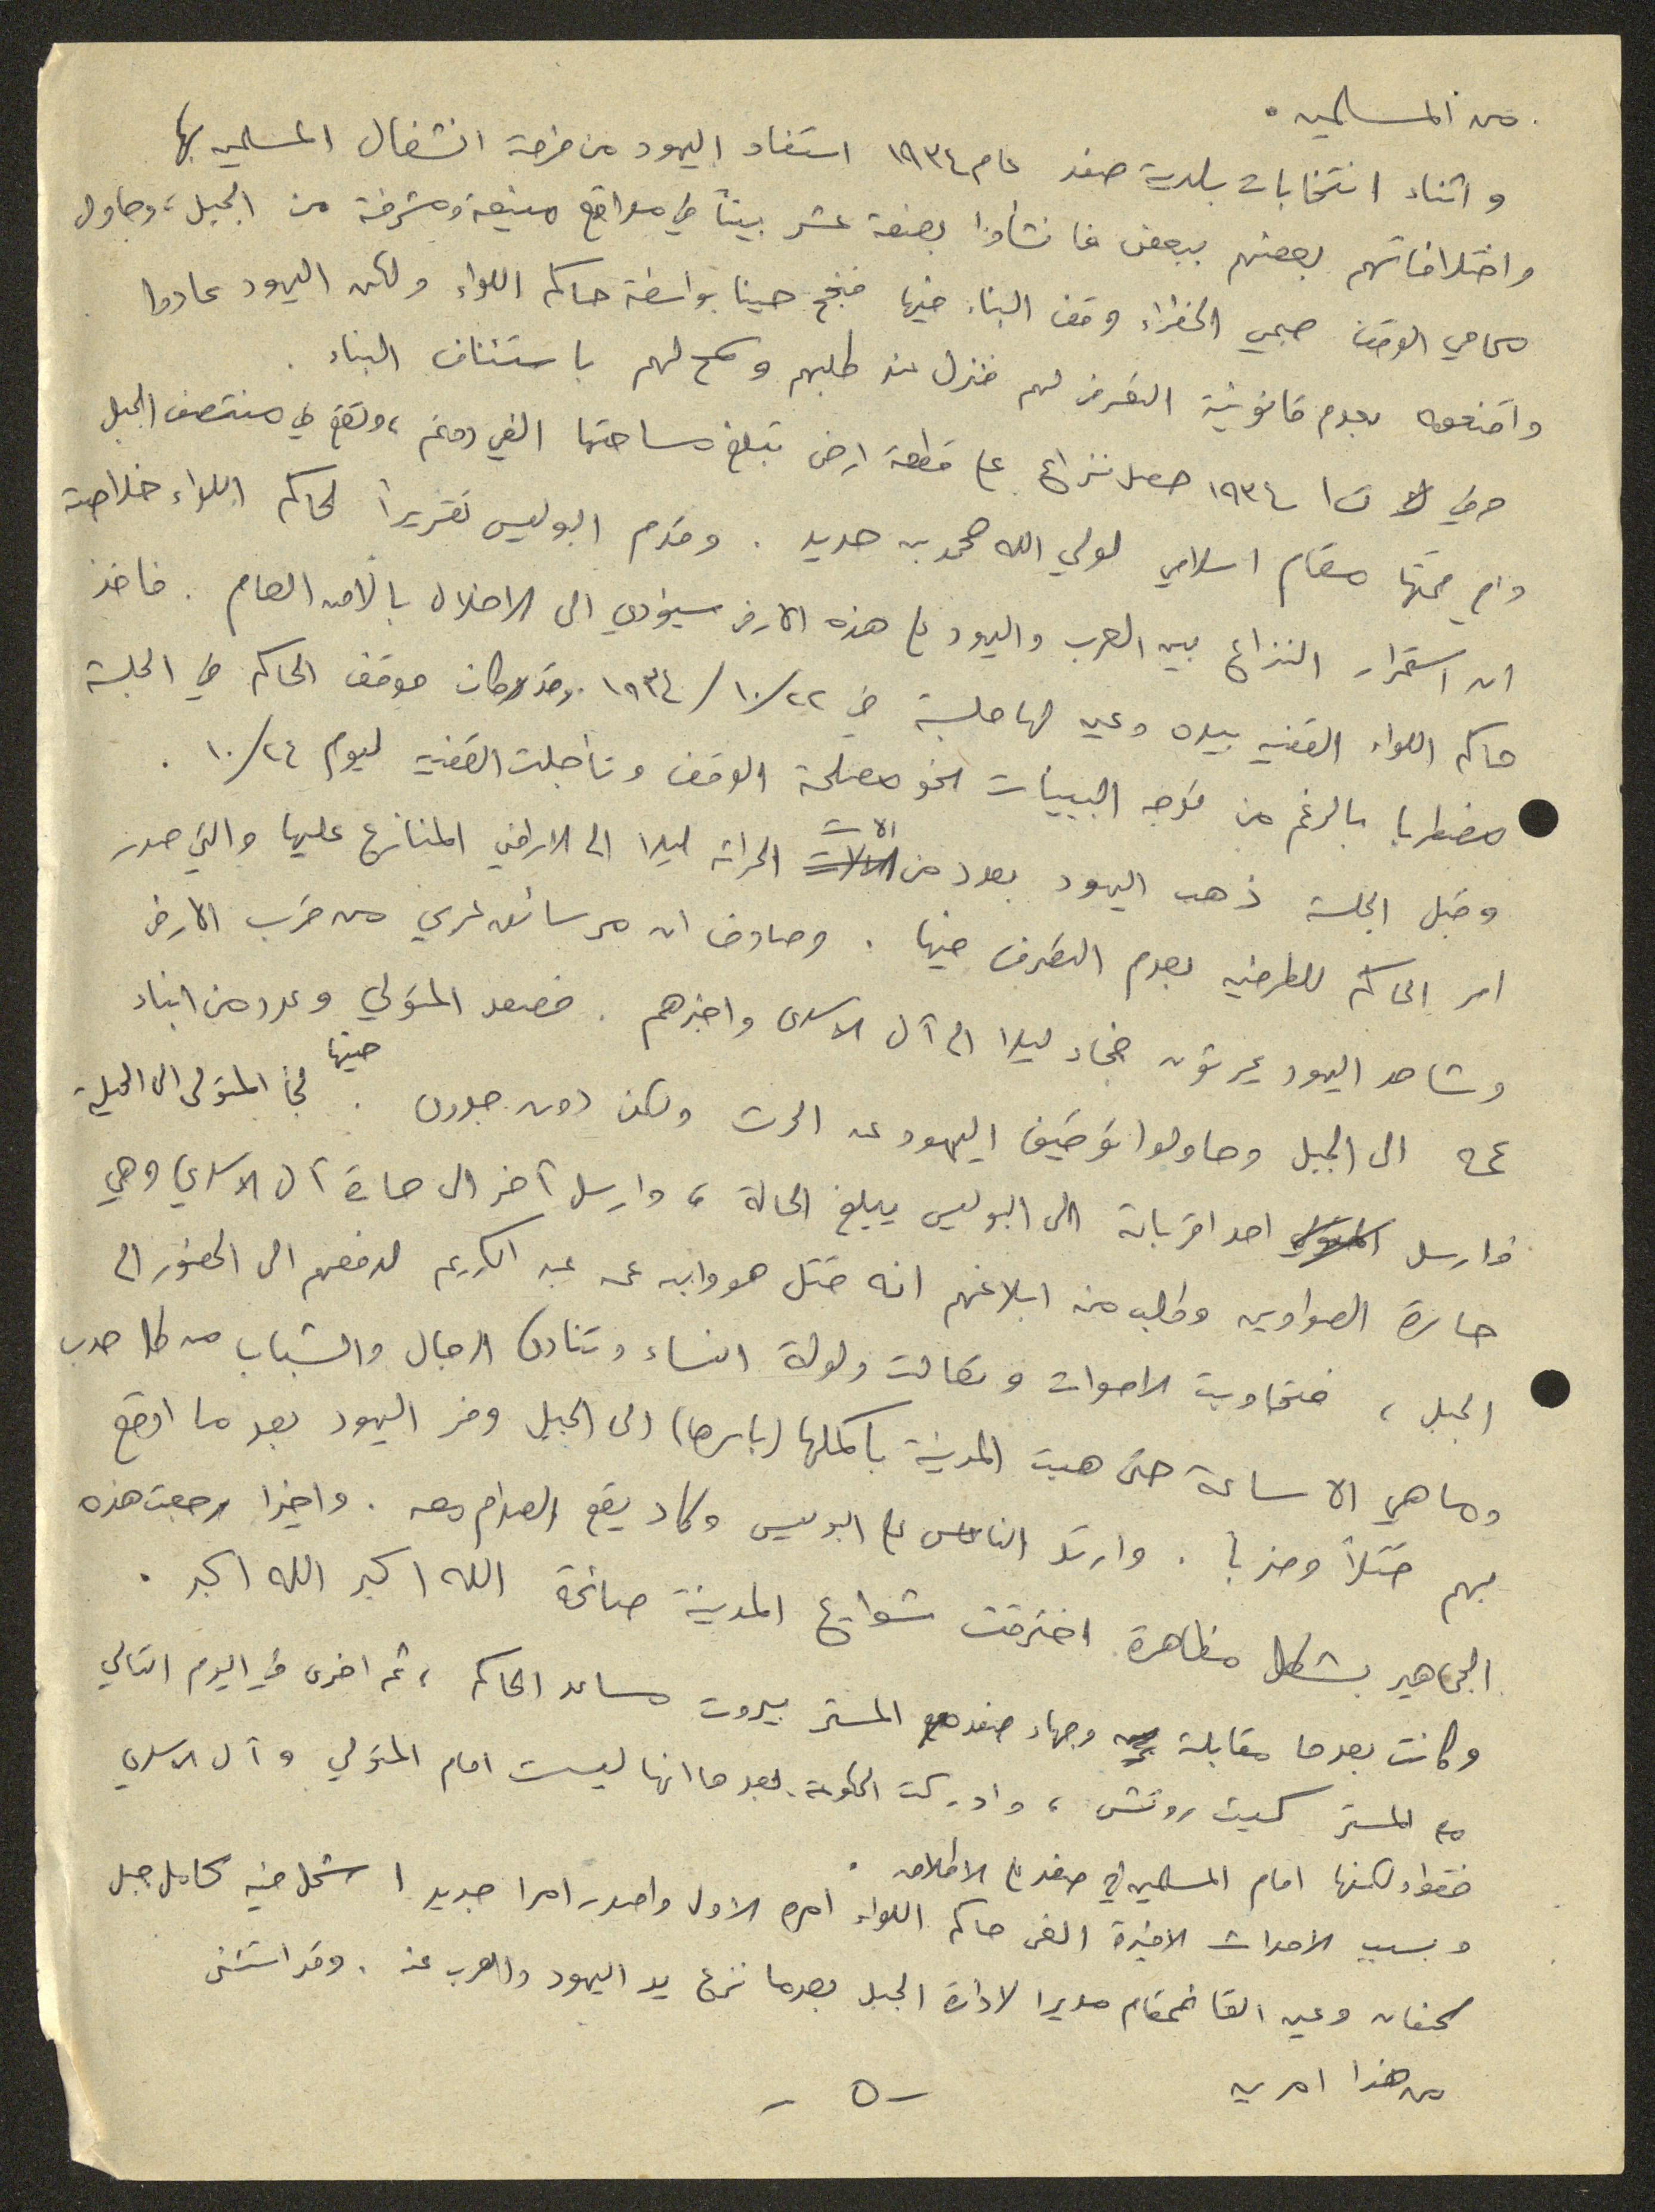 من المسلمين .
واثناء انتخابات بلدية صفد عام ١٩٣٤ استفاد اليهود من فرصة انشغال المسلمين بها
واختلافاتهم بعضهم ببعض فانشأوا بضعة عشر بيتاً في مواقع منيعة ومشرفة من الجبل ، وحاول
محامي الوقف صبحي الخضراء وقف البناء فيها فنجح حينا بواسطة حاكم اللواء ولكن اليهود عادوا
واقنعوه بعدم قانونية التعرض لهم فنزل عند طلبهم وسمح لهم باستئناف البناء .
وفي ت١ ١٩٣٤ حصل نزاع على قطعة ارض تبلغ مساحتها الفي دونم ، وتقع في منتصف الجبل
وام قمتها مقام اسلامي لولي الله محمد بن حديد . وقدم البوليس تقريراً لحاكم اللواء خلاصته
ان استمرار النزاع بين العرب واليهود على هذه الارض سيؤدي الى الاخلال بالامن العام . فاخذ
حاكم اللواء القضية بيده وعين لها جلسة في ٢٢/١٠/١٩٣٤ . وقد كان موقف الحاكم في الجلسة
مضطربا بالرغم من توجه البينات نحو مصلحة الوقف وتأجلت القضية ليوم ٢٤/١٠ .
وقبل الجلسة ذهب اليهود بعدد من الات الحراثه ليلا الى الاراضي المتنازع عليها والتي صدر
امر الحاكم للطرفين بعدم التصرف فيها . وصادف ان مر سائق عربي من قرب الارض
وشاهد اليهود يحرثون فجاء ليلا الى آل الاسدي واخبرهم . فصعد المتولي وعدد من ابناء
عمه الى الجبل وحاولوا توقيف اليهود عن الحرث ولكن دون جدوى . حينها لجأ المتولي الى الحيلة
فارسل احد اقربائه الى البوليس يبلغ الحالة ، وارسل آخر الى حارة آل الاسدي وهي
حارة الصواوين وطلب منه ابلاغهم انه قتل هو وابن عمه عبد الكريم لدفعهم الى الحضور الى
الجبل ، فتجاوبت الاصوات وتعالت ولولة النساء وتنادى الرجال والشباب من كل حدب
وما هي الا ساعة حتى هبت المدينة باكملها (باسرها) الى الجبل وفر اليهود بعد ما اوقع
بهم قتلاً وضربا . وارتد الناس على البوليس وكاد يقع الصدام معه . واخيرا رجعت هذه
الجماهير بشكل مظاهرة اخترقت شوارع المدينة صائحة الله اكبر الله اكبر .
وكانت بعدها مقابلة وجهاء صفد مع المستر بيروت مساعد الحاكم ، ثم اخرى في اليوم التالي
مع المستر كيت روتش ، وادركت الحكومة بعدها انها ليست امام المتولي وآل الاسدي
فقط ولكنها امام المسلمين في صفد على الاطلاق .
وبسبب الاحداث الاخيرة الغى حاكم اللواء امره الاول واصدر امرا جديدا شمل فيه كامل جبل
كنعان وعين القائمقام مديرا لادارة الجبل بعدما نزع يد اليهود والعرب عنه . وقد استثنى
من هذا امرين
- ٥ -